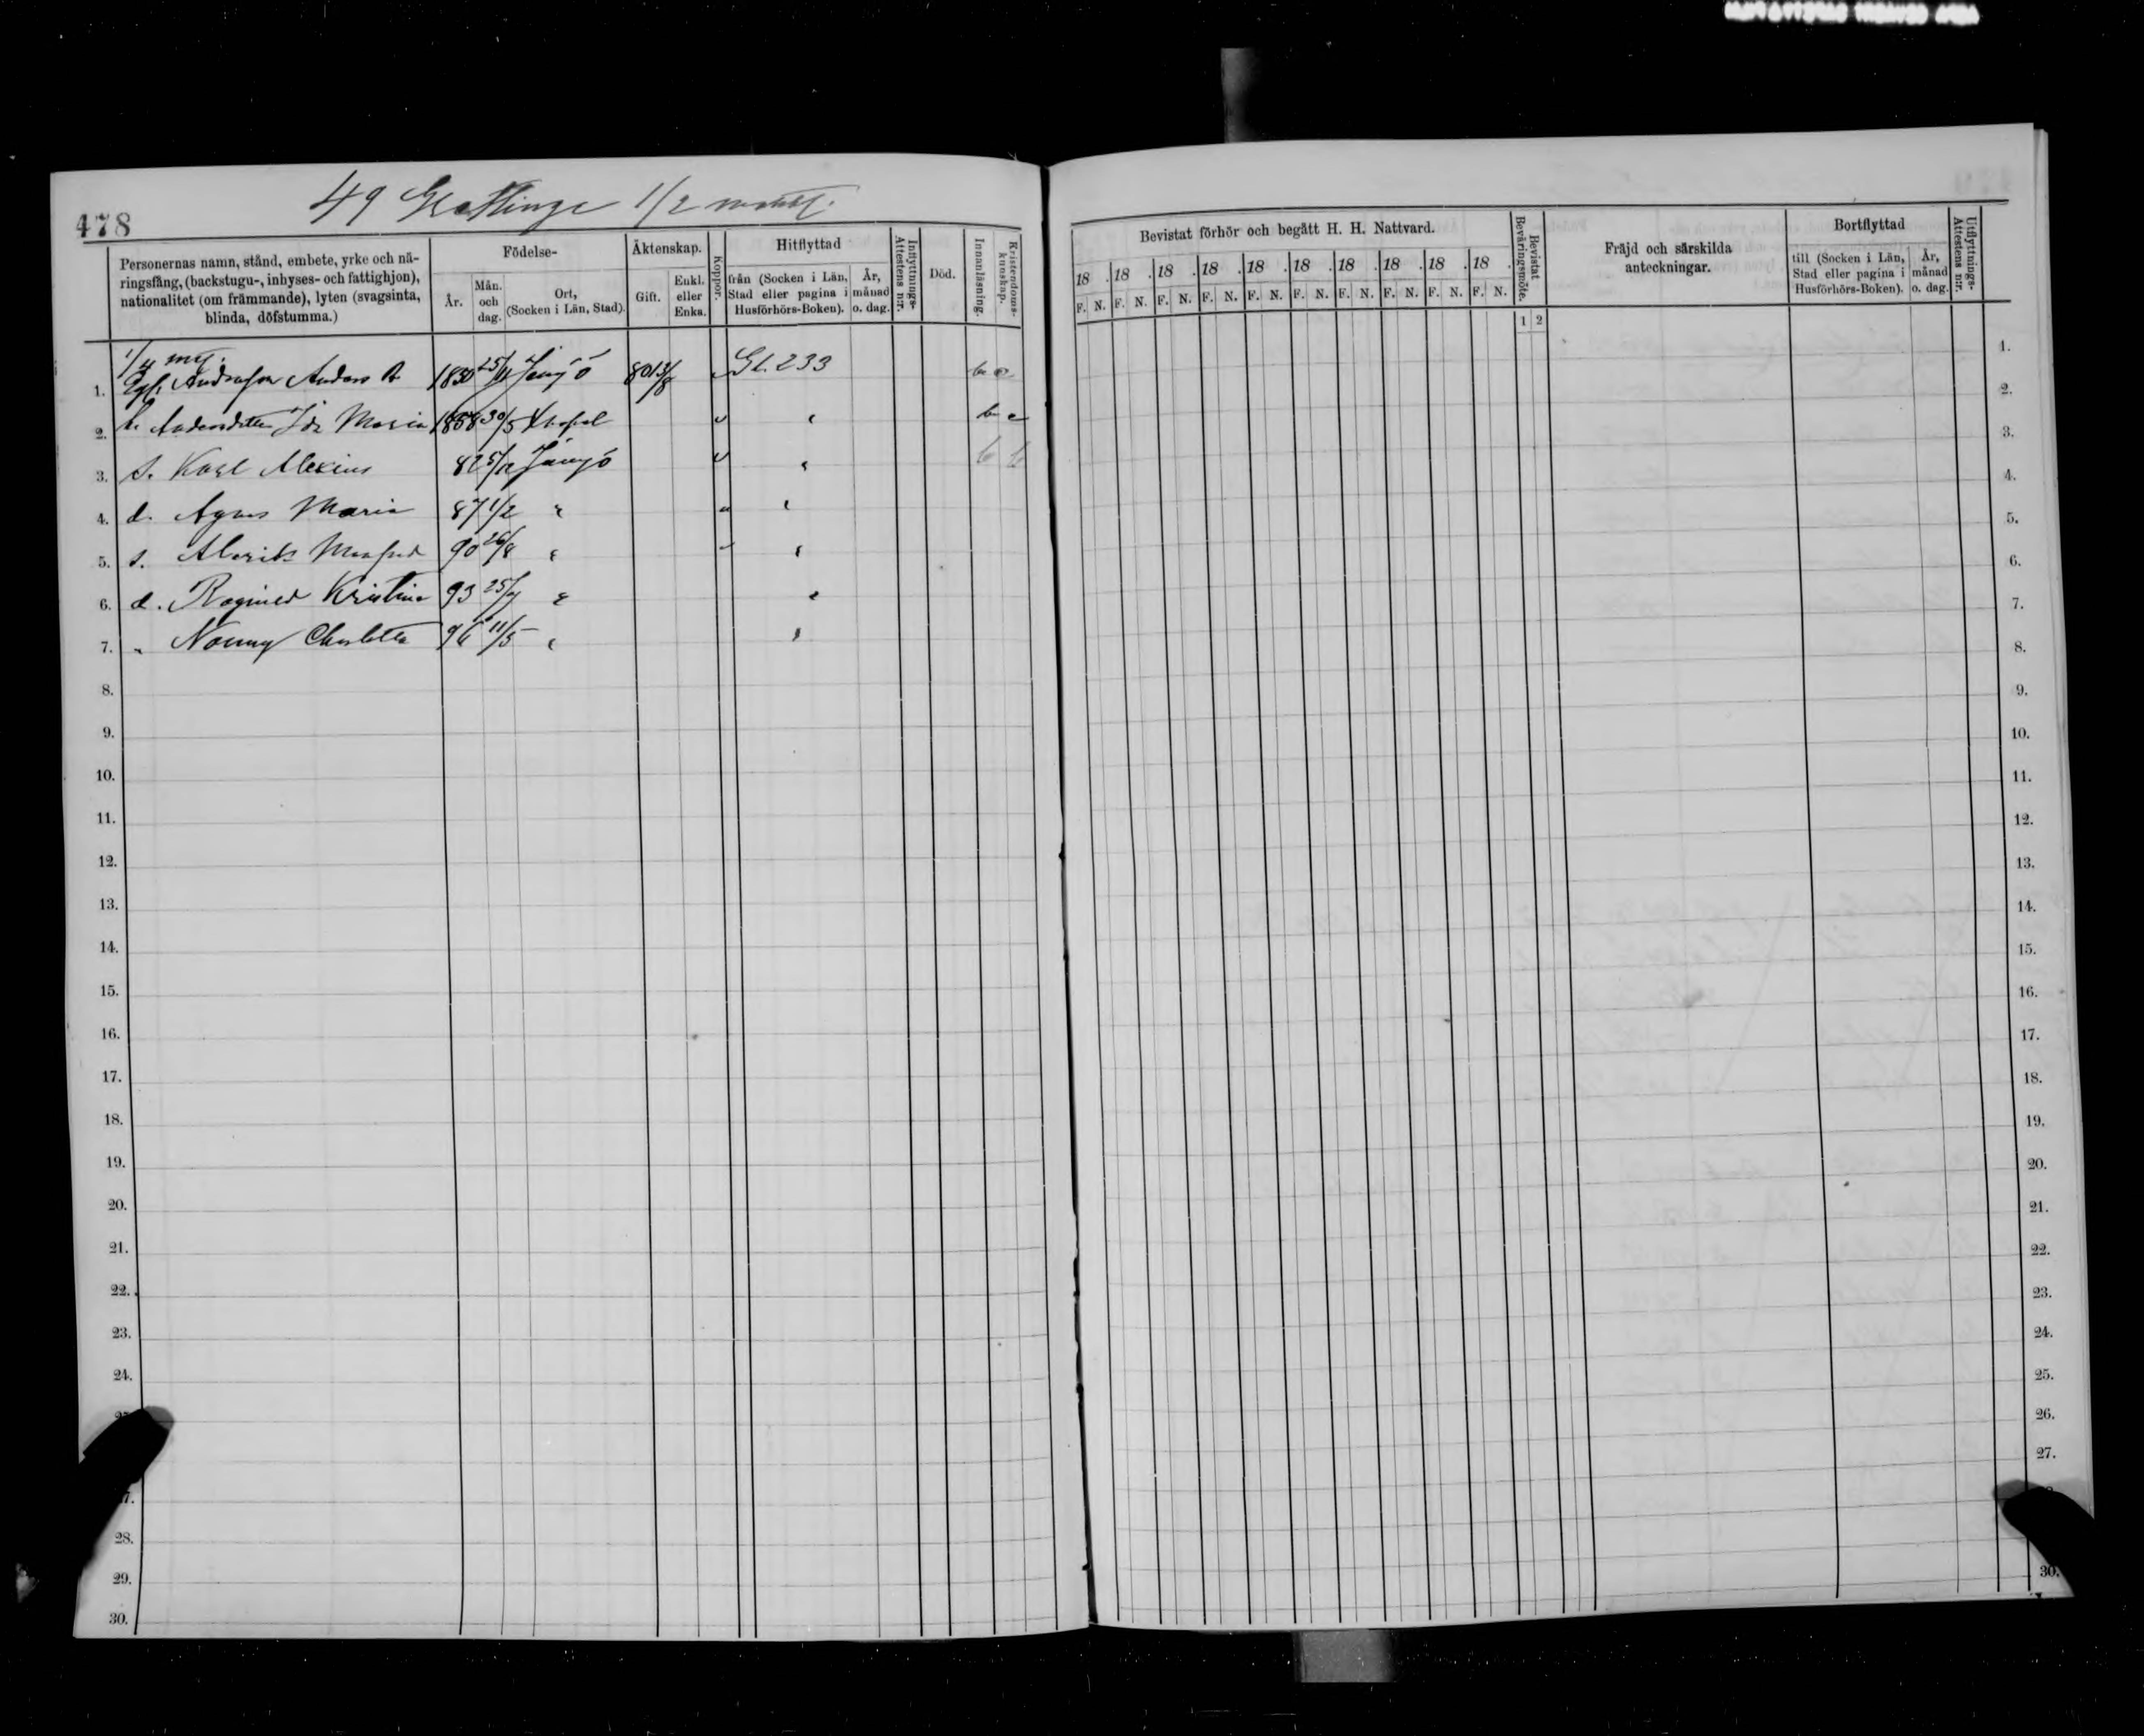 478
49 1/2
Personernas namn, stånd, embete, yrke och nä-
ringsfång, (backstugu-, inhyses- och fattighjon),
nationalitet (om främmande), lyten (svagsinta,
blinda, döfstumma.)
Födelse-
År.
Mån.
och
dag.
Ort,
(Socken i Län, Stad).
Äktenskap.
Gift.
Enkl.
eller
Enka.
Koppor.
Hitflyttad
från (Socken i Län,
Stad eller pagina i
Husförhörs-Boken).
År,
månad
o. dag.
Inflyttnings-
Attestens n:r.
Död.
Innanläsning.
Kristendoms-
kunskap.
1/4
1. Anders A. 1830 25/11 Jämjö 80 13/8 Gl. 233
2. h. Andersdotter Ida Maria 1858 30/5
3. s. Karl Alexius 82 5/12 Jämjö
4. d. Agnes Maria 87 1/2 "
5. s. Alarik Manfred 90 26/8 "
6. d. Ragnild Kristina 93 25/7 "
7. " Nanny Charlotta 96 11/5 "
8.
9.
10.
11.
12.
13.
14.
15.
16.
17.
18.
19.
20.
21.
22.
23.
24.
28.
29.
30.
Bevistat förhör och begått H. H. Nattvard.
18 . 18 . 18 . 18 . 18 . 18 . 18 . 18 . 18 . 18 .
F. N. F. N. F. N. F. N. F. N. F. N. F. N. F. N. F. N. F. N.
Bevistat
Beväringsmöte.
1 2
Fräjd och särskilda
anteckningar.
Bortflyttad
till (Socken i Län,
Stad eller pagina i
Husförhörs-Boken).
År,
månad
o. dag.
Utflyttnings-
Attestens n:r.
1.
2.
3.
4.
5.
6.
7.
8.
9.
10.
11.
12.
13.
14.
15.
16.
17.
18.
19.
20.
21.
22.
23.
24.
25.
26.
27.
30.